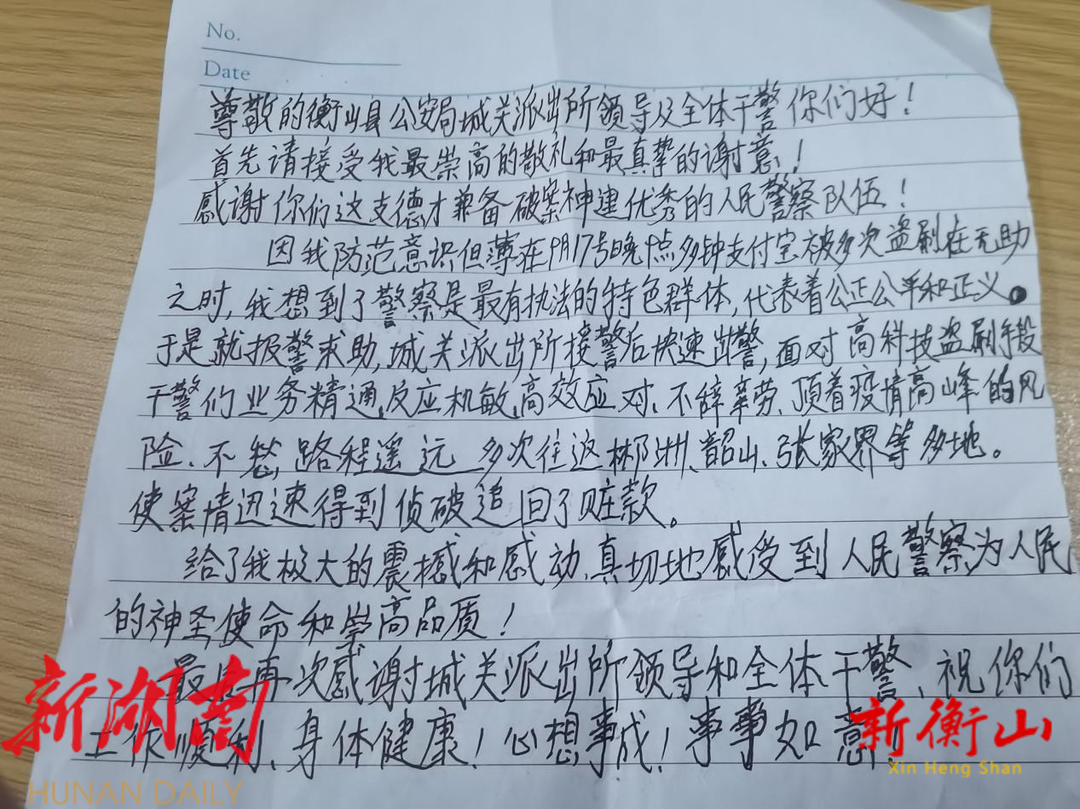 No.
Date
尊敬的衡山县公安局城关派出所领导及全体干警你们好！
首先请接受我最崇高的敬礼和最真挚的谢意！
感谢你们这支德才兼备破案神速优秀的人民警察队伍！
因我防范意识但薄在9月17号晚9点多钟支付宝被多次盗刷在无助
之时，我想到了警察是最有执法的特色群体，代表着公正公平和正义。
于是就报警求助，城关派出所接警后快速出警，面对高科技盗刷手段
干警们业务精通、反应机敏、高效应对、不辞辛劳、顶着疫情高峰的风
险、不愁路程遥远多次往返郴洲、韶山、张家界等多地。
使案情迅速得到侦破追回了赃款。
给了我极大的震撼和感动，真切地感受到人民警察为人民
的神圣使命和崇高品质！
最后再次感谢城关派出所领导和全体干警、祝你们
工作顺利、身体健康！心想事成！事事如意！
新湖南
HUNAN DAILY
新衡山
Xin Heng Shan